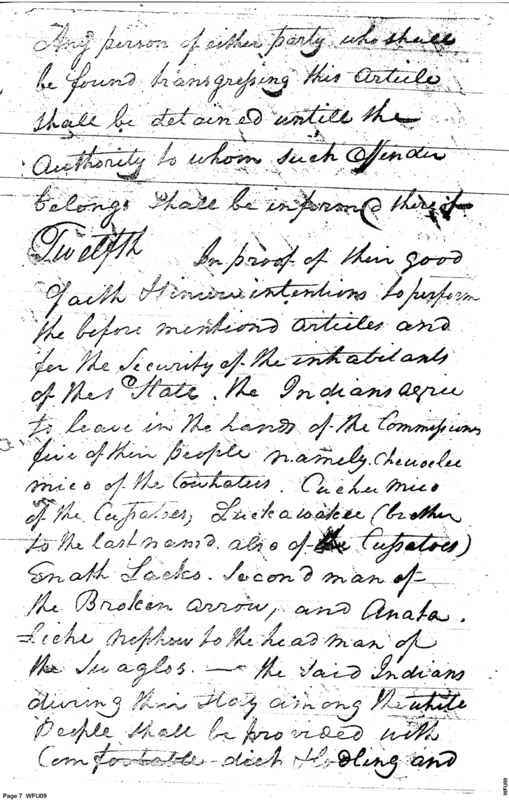 Any person of either party who shall
be found transgressing this Article
shall be detained untill the
Authority to whom such Offender
belongs shall be informed thereof
Twelfth In proof of their good
faith & sincere intentions to perform
the before mentiond articles and
for the Security of the inhabitants
of the State. the Indians agree
to leave in the hands of the Commissioners
five of their people namely. Cheuoclee
mico of the Cowhaters. Cuchu mico
of the Cusatoes, Luckawakee (brother
to the last named. also of the Cusatoes)
Enath Lacks. Second man of
the Broken arrow, and Anata.
Liche nephew to the head man of
the Swaglos. — the said Indians
during their stay among the white
People shall be provided with
Comfortable diet & and
Page 7 WFU09
WFU09